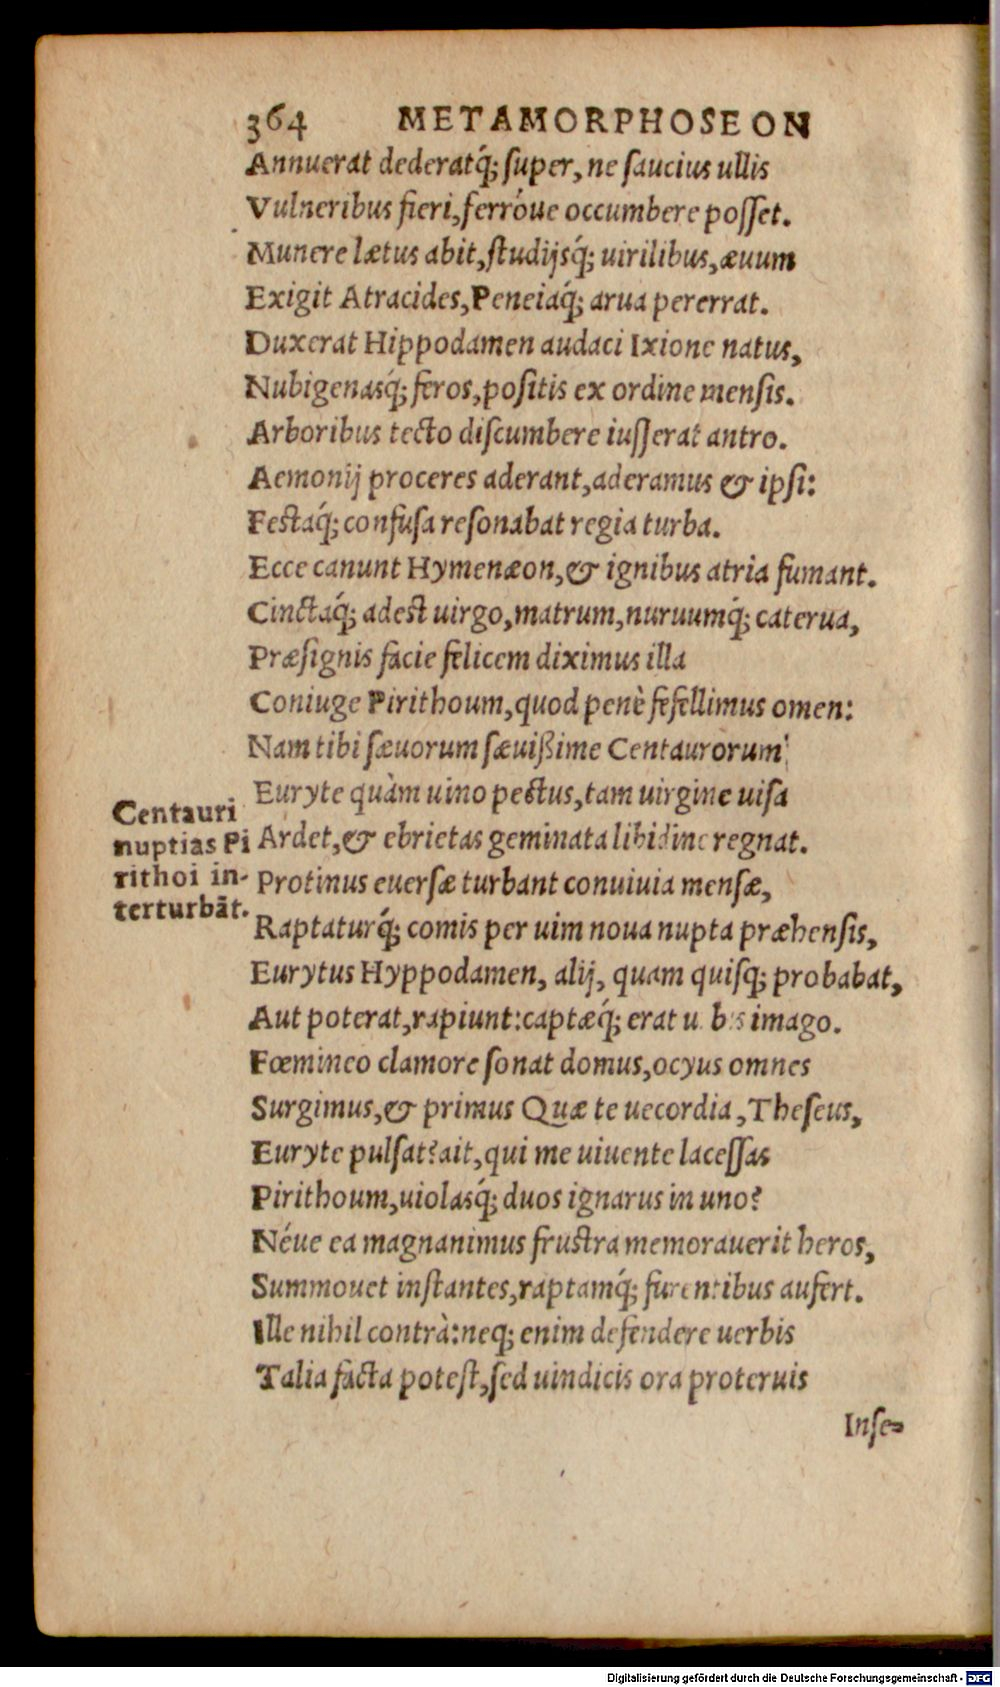 364 METAMORPHOSEON
Annuerat dederatq́; ſuper, ne ſaucius ullis
Vulneribus fieri, ferróue occumbere poſſet.
Munere lætus abit, ſtudijsq́; uirilibus, æuum
Exigit Atracides, Peneiaq́; arua pererrat.
Duxerat Hippodamen audaci Ixione natus,
Nubigenasq́; feros, poſitis ex ordine menſis.
Arboribus tecto diſcumbere iuſſerat antro.
Aemonij proceres aderant, aderamus & ipſi:
Feſtaq́; confuſa reſonabat regia turba.
Ecce canunt Hymenæon, & ignibus atria fumant.
Cinctaq́; adest uirgo, matrum, nuruumq́; caterua,
Præſignis facie felicem diximus illa
Coniuge Pirithoum, quod penè fefellimus omen:
Nam tibi ſæuorum ſæuißime Centaurorum
Euryte quàm uino pectus, tam uirgine uiſa
Ardet, & ebrietas geminata libidine regnat.
Protinus euerſæ turbant conuiuia menſæ,
Raptaturq́; comis per uim noua nupta præhenſis,
Eurytus Hyppodamen, alij, quam quiſq; probabat,
Aut poterat, rapiunt: captæq́; erat imago.
Fœmineo clamore ſonat domus, ocyus omnes
Surgimus, & primus Quæ te uecordia, Theſeus,
Euryte pulſat? ait, qui me uiuente laceſſas
Pirithoum, uiolasq́; duos ignarus in uno?
Néue ea magnanimus fruſtra memorauerit heros,
Summouet inſtantes, raptamq́; furentibus aufert.
Ille nihil contrà: neq; enim defendere uerbis
Talia facta poteſt, ſed uindicis ora proteruis
Inſe=
Centauri
nuptias Pi
rithoi in-
terturbāt.
Digitalisierung gefördert durch die Deutsche Forschungsgemeinschaft - DFG